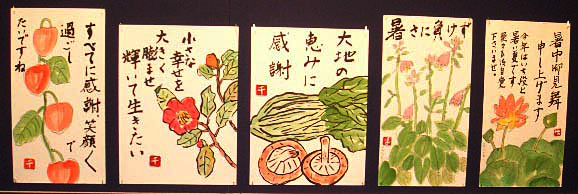 すべてに感謝、笑顔で
過ごし
たいですね
小さな幸せを
大きく
膨ませ
輝いて生きたい
大地の
恵みに
感謝
暑さに負けず
暑中御見舞
申し上げます
今年はいち段と
暑い夏です
下さいませ。
千
千
千